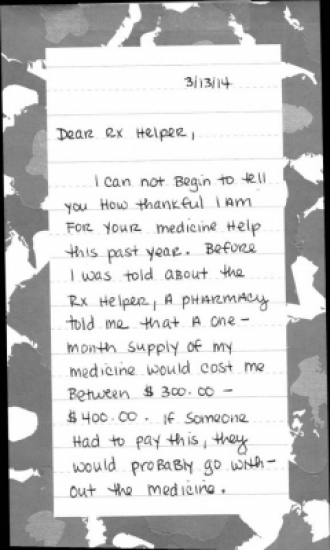 3/13/14
Dear Rx Helper,
I can not Begin to tell
you How thankful I AM
FOR YOUR medicine Help
this past year. Before
I was told about the
Rx Helper, A pharmacy
told me that A one-
month supply of my
medicine would cost me
Between $300.00 -
$400.00. If Someone
Had to pay this, they
would probably go with-
out the medicine.